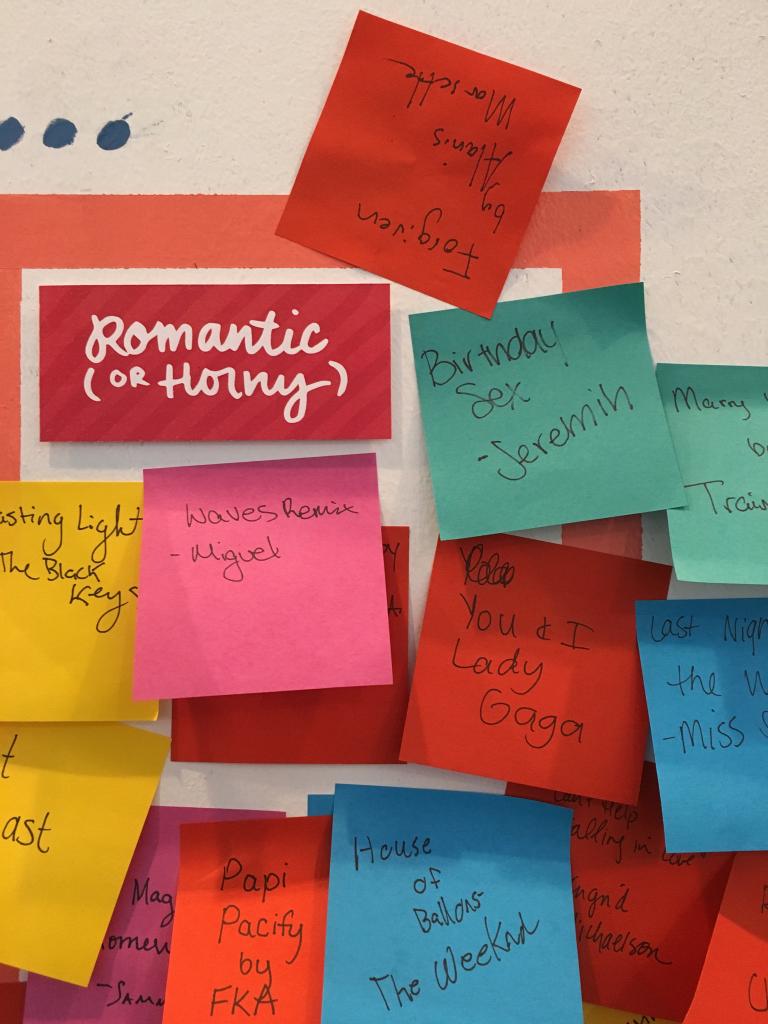 Forgiven
by Alanis
Morsette
Romantic
(OR HORNY)
Birthday
Sex
-Jeremih
Marry
Train
asting Light
The Black
Keys
Waves Remix
- Miguel
You & I
Lady
Gaga
Last Nigh
the W
-Miss S
t
ast
Mag
omen
-SAMM
Papi
Pacify
by
FKA
House
of
Ballons-
The Weeknd
Can't Help
Falling in Love"
Ingrid
Michaelson